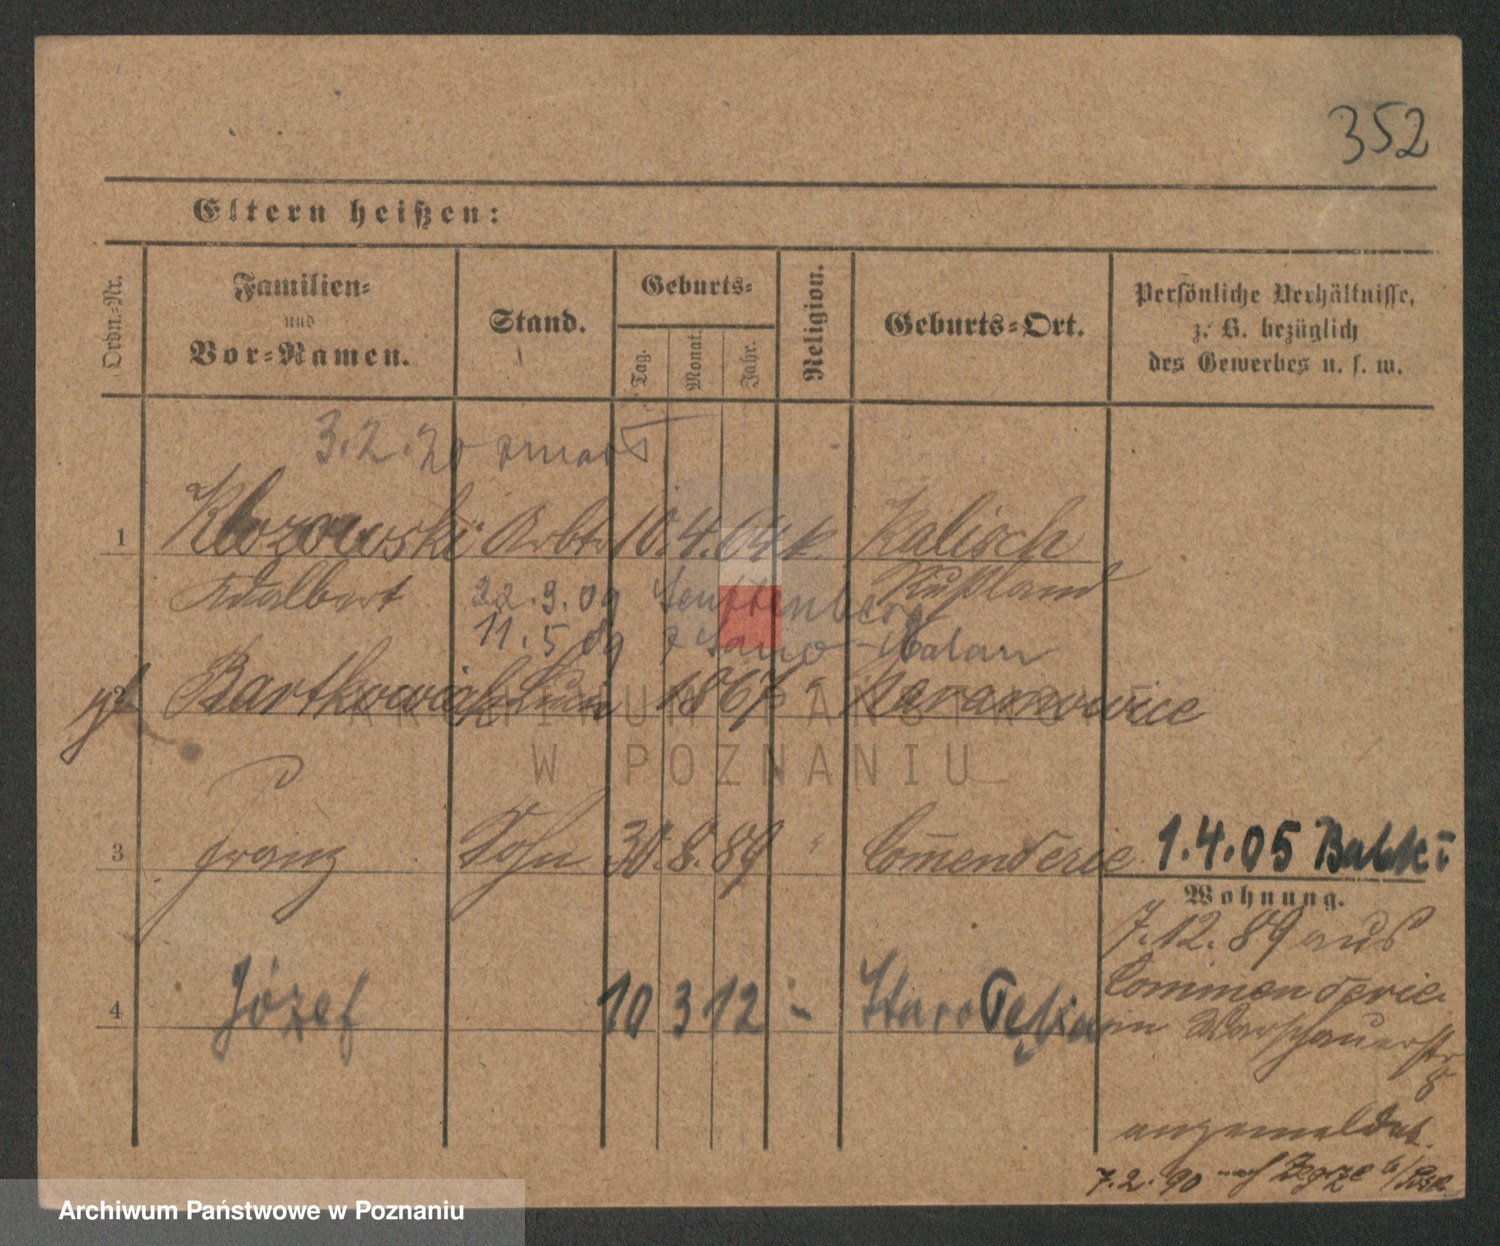 352
Eltern heißen:
Ordn.-Nr.
Familien-
und
Vor-Namen.
Stand.
Geburts-
Tag.
Monat.
Jahr.
Religion.
Geburts-Ort.
Persönliche Verhältnisse,
z. B. bezüglich
des Gewerbes u. s. w.
3.2.20 zmarł
1 Klozowski Arbtr 10.4.64 k. Kalisch
Adalbert 22.9.09 Senftenberg Rußland
11.5 09
geb. 2 Bartkowiak 1867 "
3 Franz Sohn 30.8.89 " Commenderie 1.4.05
Wohnung.
7.12.89 aus
Commenderie
4 Józef 10 3 12 - Staro
in Warschauerstr
8
angemeldet.
7.2.90 nach Zegrze b/
ARCHIWUM PAŃSTWOWE
W POZNANIU
Archiwum Państwowe w Poznaniu